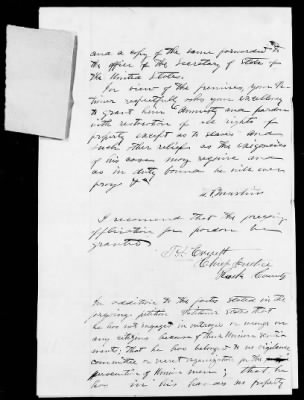 and a copy of the same forwarded to
the office of the Secretary of State of
the United States.
In view of the premises, your Pe-
titioner respectfully asks your Excellency
to grant him Amnesty and pardon
with restoration of all rights of
property except as to slaves and
such other relief as the exigencies
of his case may require and
as in duty bound he will ever
pray &c
I recommend that the foregoing
application for pardon be
granted
Chief Justice
County
In addition to the facts stated in the
foregoing petition Petitioner states that
he has not engaged in outrages or wrongs on
any citizens because of their Union senti-
ments; that he has belonged to no vigilance
committee or secret organization for the
persecution of Union men; that he
has in his hands no property